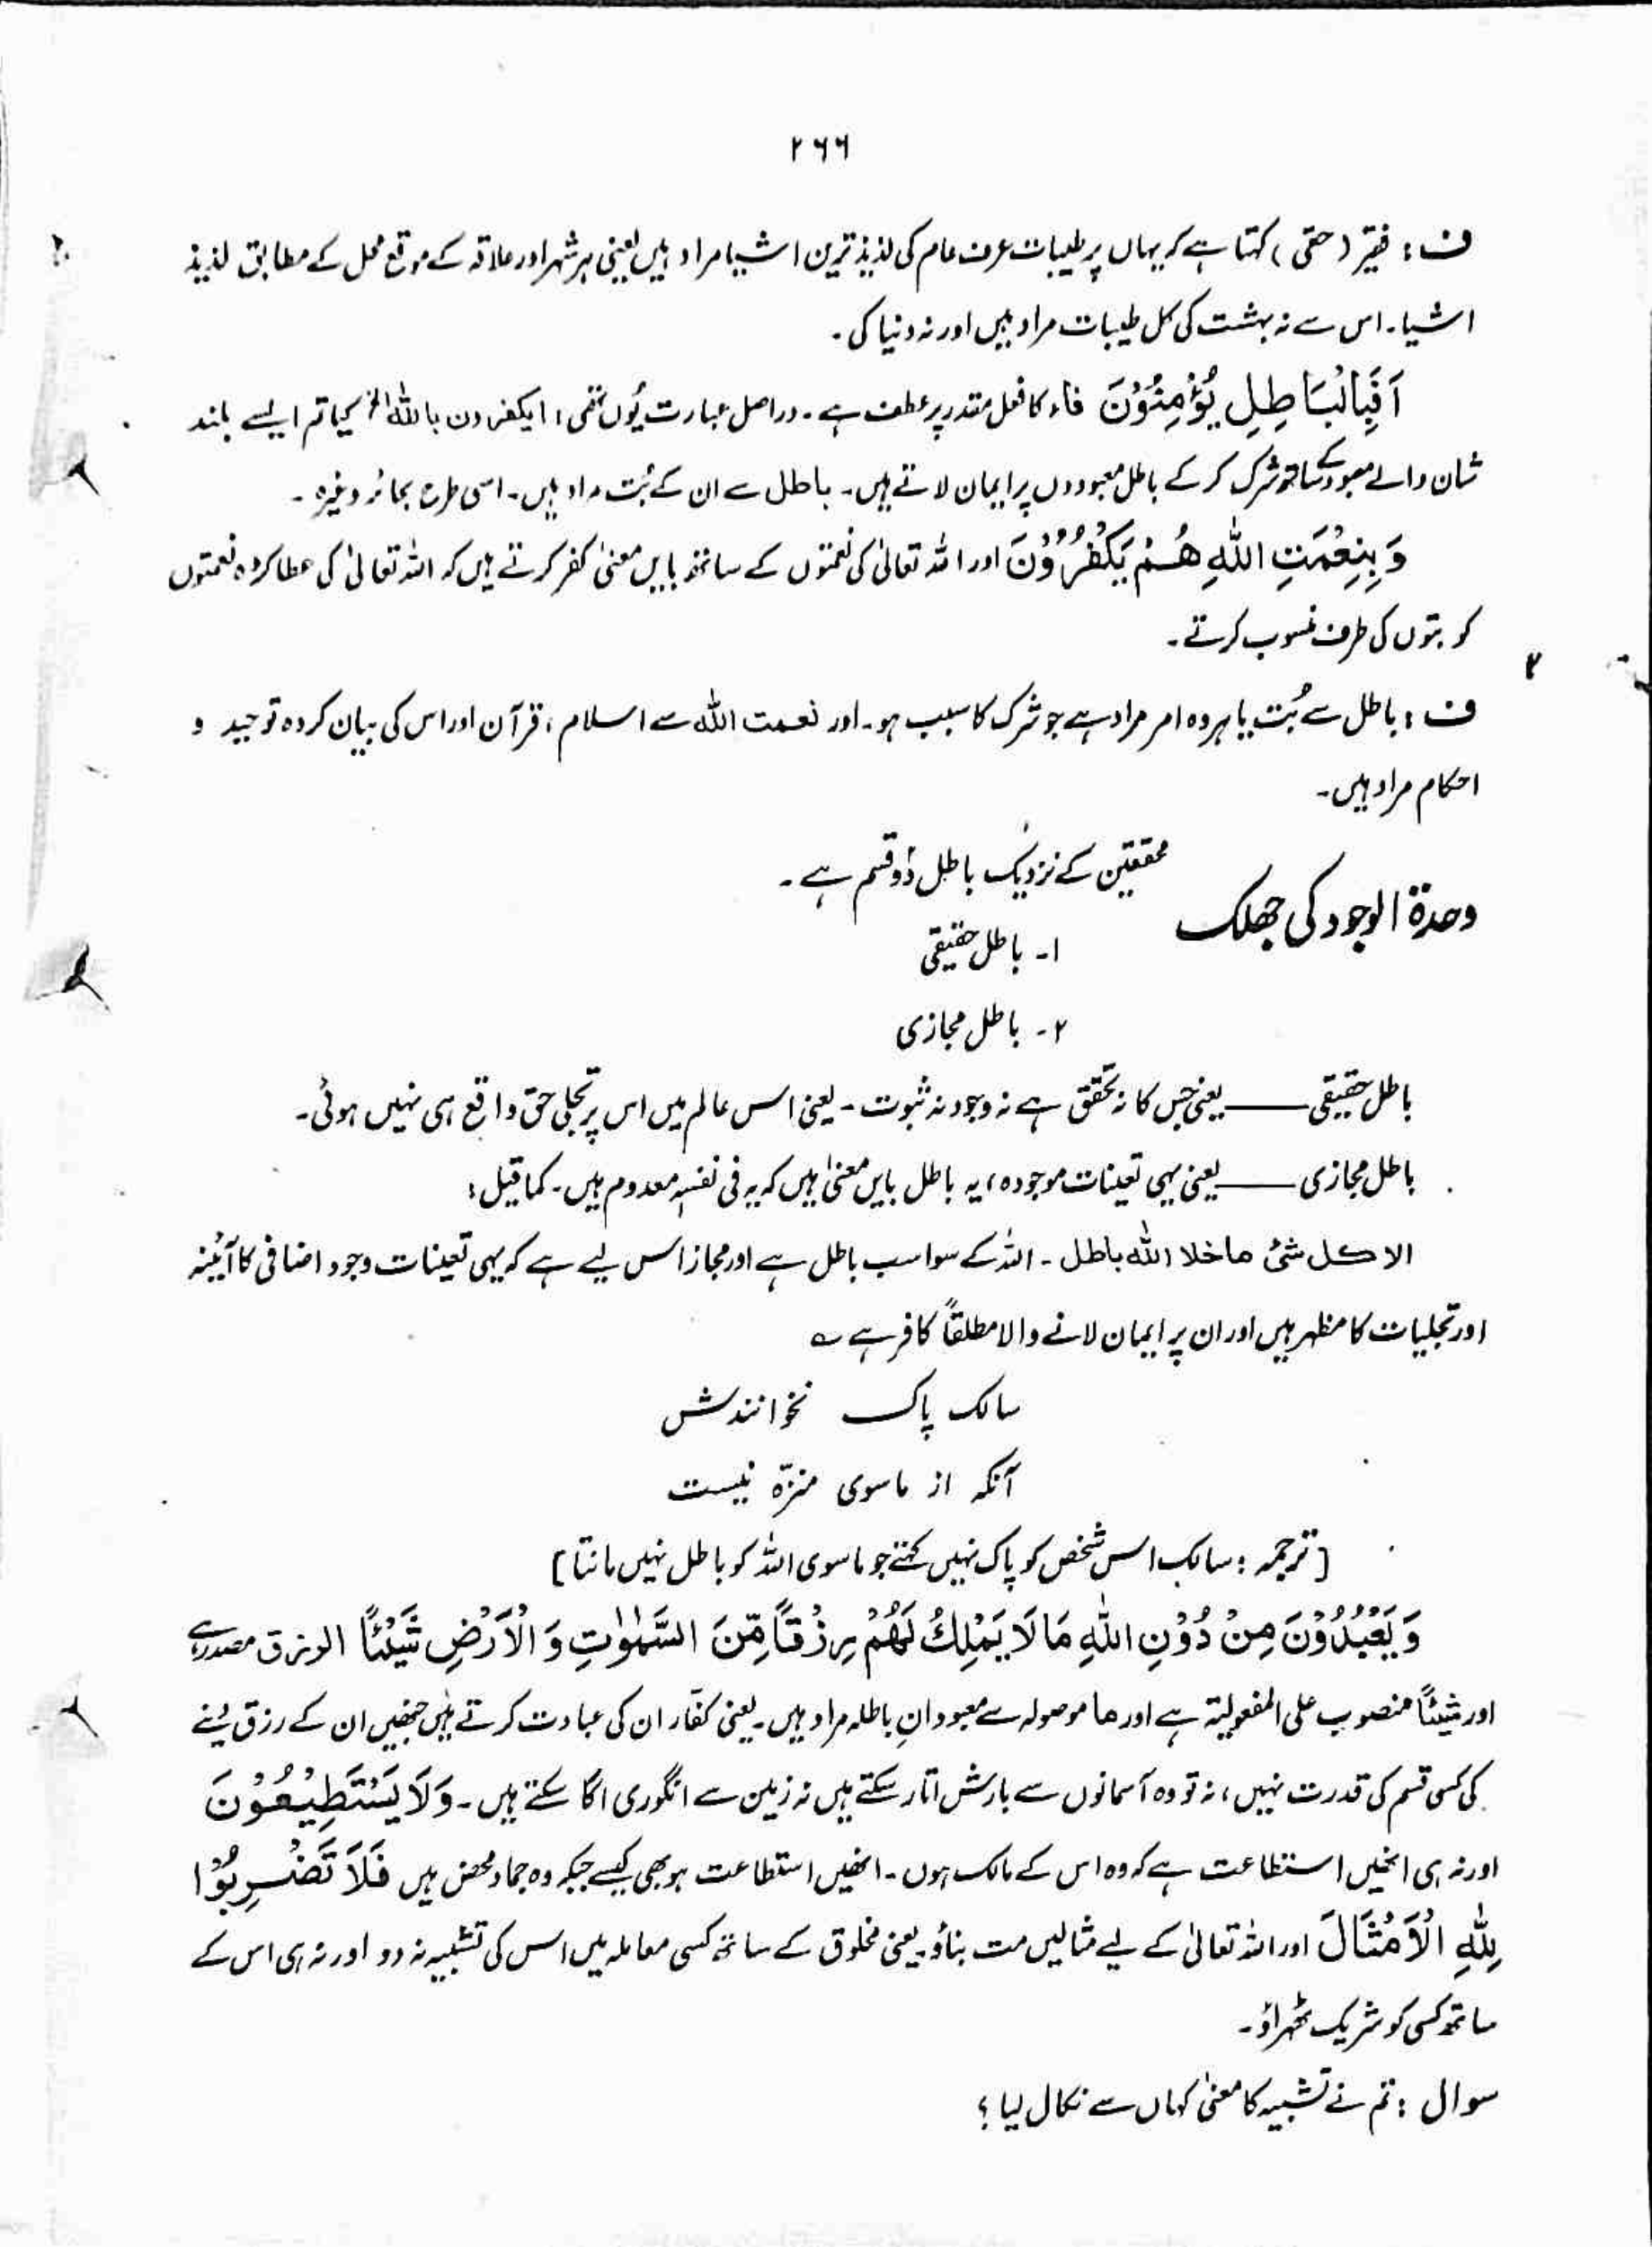 ۲۶۶
ف : فقیر (حقی) کہتا ہے کہ یہاں پر طیبات عرف عام کی لذیذ ترین اشیا مراد ہیں یعنی ہر شہر اور علاقہ کے موقع محل کے مطابق لذیذ
اشیا۔ اس سے نہ بہشت کی کل طیبات مراد ہیں اور نہ دنیا کی۔
اَفَبِالْبَاطِلِ يُؤْمِنُوْنَ فاء کا فعل مقدر پر عطف ہے۔ دراصل عبارت یُوں تھی، ایکفرون باللہ الخ کیا تم ایسے بلند
شان والے معبود کے ساتھ شرک کر کے باطل معبودوں پر ایمان لاتے ہیں۔ باطل سے ان کے بُت مراد ہیں۔ اسی طرح بحائر وغیرہ۔
وَ بِنِعْمَتِ اللّٰهِ هُمْ يَكْفُرُوْنَ اور اللہ تعالیٰ کی نعمتوں کے ساتھ بایں معنیٰ کفر کرتے ہیں کہ اللہ تعالیٰ کی عطا کردہ نعمتوں
کو بتوں کی طرف منسوب کرتے۔
۲
ف : باطل سے بُت یا ہر وہ امر مراد ہے جو شرک کا سبب ہو۔ اور نعمت اللہ سے اسلام، قرآن اور اس کی بیان کردہ توحید و
احکام مراد ہیں۔
وحدۃ الوجود کی جھلک
محققین کے نزدیک باطل دُو قسم ہے۔
۱۔ باطل حقیقی
۲۔ باطل مجازی
باطل حقیقی ——— یعنی جس کا نہ تحقق ہے نہ وجود نہ ثبوت۔ یعنی اس عالم میں اس پر تجلی حق واقع ہی نہیں ہوئی۔
باطل مجازی ——— یعنی یہی تعینات موجودہ، یہ باطل بایں معنیٰ ہیں کہ یہ فی نفسہٖ معدوم ہیں۔ کما قیل :
الا کل شئ ماخلا اللہ باطل۔ اللہ کے سوا سب باطل ہے اور مجازاً اس لیے ہے کہ یہی تعینات وجود اضافی کا آئینہ
اور تجلیات کا مظہر ہیں اور ان پر ایمان لانے والا مطلقاً کافر ہے ؎
سالک پاک نخوانندش
آنکہ از ماسوی منزّہ نیست
[ترجمہ : سالک اس شخص کو پاک نہیں کہتے جو ماسوی اللہ کو باطل نہیں مانتا]
وَ يَعْبُدُوْنَ مِنْ دُوْنِ اللّٰهِ مَا لَا يَمْلِكُ لَهُمْ رِزْقًا مِّنَ السَّمٰوٰتِ وَ الْاَرْضِ شَيْئًا الرزق مصدر ہے
اور شیئًا منصوب علی المفعولیۃ ہے اور ما موصولہ سے معبودانِ باطلہ مراد ہیں۔ یعنی کفّار ان کی عبادت کرتے ہیں جنھیں ان کے رزق دینے
کی کسی قسم کی قدرت نہیں، نہ تو وہ آسمانوں سے بارش اتار سکتے ہیں نہ زمین سے انگوری اگا سکتے ہیں۔ وَلَا يَسْتَطِيْعُوْنَ
اور نہ ہی انھیں استطاعت ہے کہ وہ اس کے مالک ہوں۔ انھیں استطاعت ہو بھی کیسے جبکہ وہ جماد محض ہیں فَلَا تَضْرِبُوْا
لِلّٰهِ الْاَمْثَالَ اور اللہ تعالیٰ کے لیے مثالیں مت بناؤ۔ یعنی مخلوق کے ساتھ کسی معاملہ میں اس کی تشبیہ نہ دو اور نہ ہی اس کے
ساتھ کسی کو شریک ٹھہراؤ۔
سوال : تم نے تشبیہ کا معنیٰ کہاں سے نکال لیا ؟